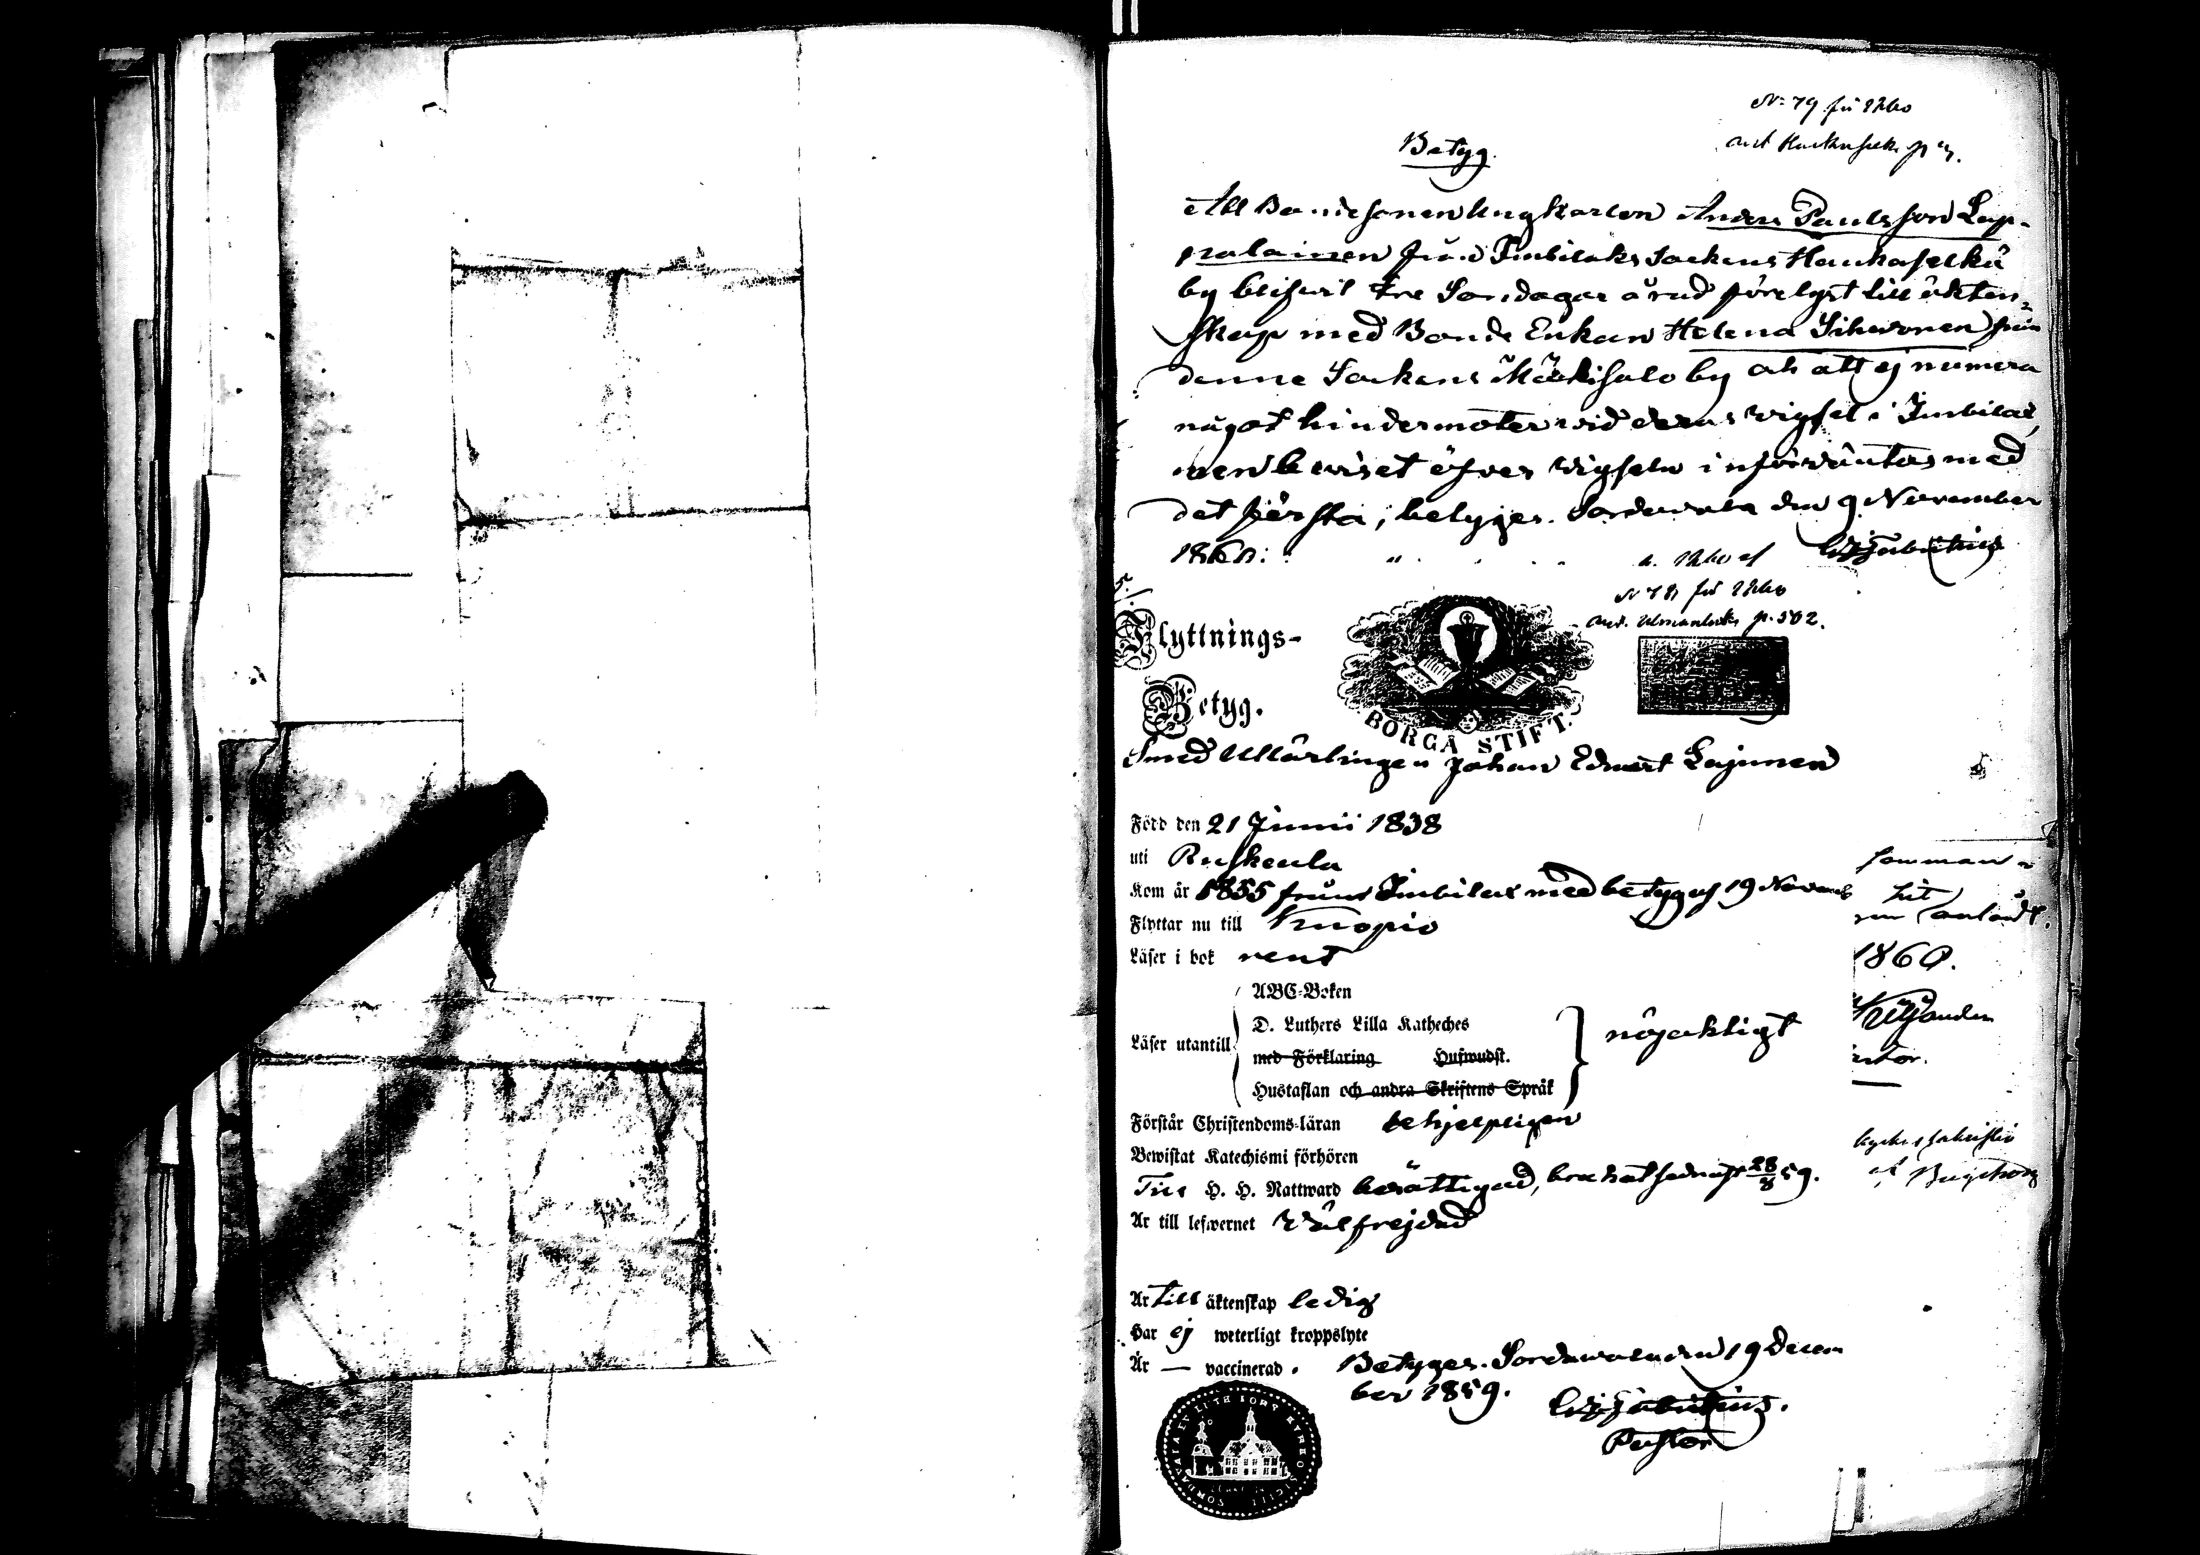 Betyg.
Att Bondesonen Ungkarlen Anders Paulsson Lap-
palainen från Imbilaks Sockens Haukaselkä
by blifvit tre Söndagar å rad förelyst till äkten-
skap med Bonde Enkan Helena Sihvonen från
denne Sockens Mäkisalo by och att ej numera
något hinder möter vid deras vigsel i Imbilax,
men beviset öfver vigseln införväntas med
det första; betyges. Sordavala den 9 November
1860.
Flyttnings-
Betyg.
BORGÅ STIFT.
Smed Lärlingen Johan Edvert Lajunen
Född den 21 Junii 1838
uti Ruskeala
Kom år 1855 från Imbilax med betyg af 19 Novemb
Flyttar nu till Kuopio
Läser i bok rent
Läser utantill
ABC-Boken
D. Luthers Lilla Katheches
med Förklaring Hufwudst.
Hustaflan och andra Skriftens Språk
nöjaktigt
Förstår Christendoms-läran behjelpligen
Bewistat Katechismi förhören
Till H. H. Nattward berättigad, 28/8 59.
Är till lefwernet Välfrejdad
Är till äktenskap ledig
Har ej weterligt kroppslyte
Är — vaccinerad.
Betyges. Sordavala den 19 Decem
ber 1859.
Pastor
hit
anländt.
1860.